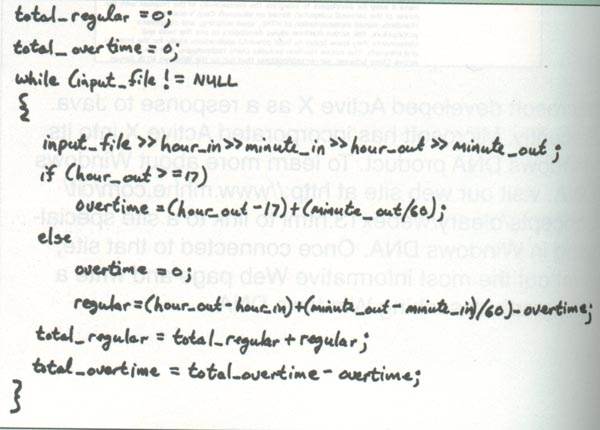 total_regular =0;
total_overtime = 0;
while (input_file != NULL
{
input_file >> hour_in >> minute_in >> hour_out >> minute_out;
if (hour_out >= 17)
overtime = (hour_out - 17) + (minute_out/60);
else
overtime = 0;
regular = (hour_out - hour_in) + (minute_out - minute_in)/60) - overtime;
total_regular = total_regular + regular;
total_overtime = total_overtime - overtime;
}